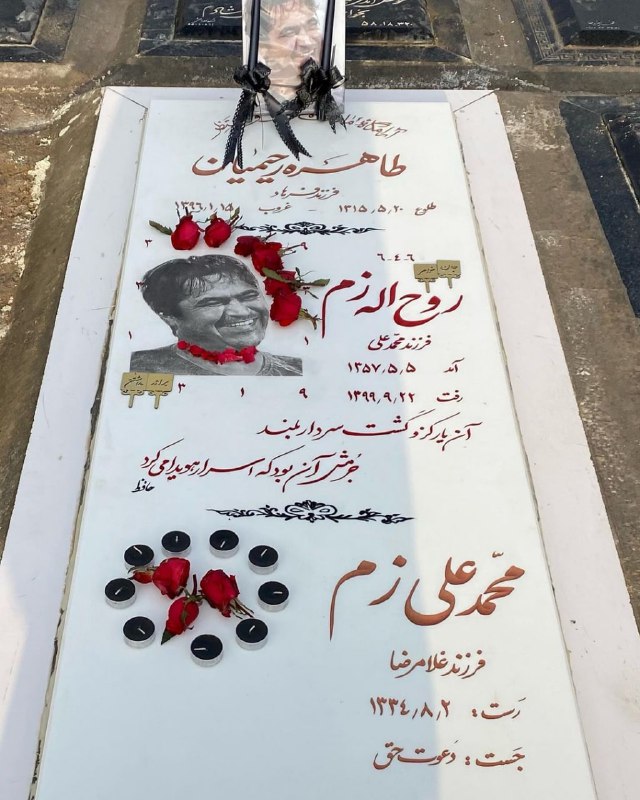 طاهره رحیمیان
فرزند فرهاد
طلوع ۱۳۱۵,۵,۲۰ - غروب ۱۳۹۶,۱,۱۵
۳
۹
۶-۴-۶
روح اله زم
فرزند محمدعلی
۱
۱
آمد ۱۳۵۷,۵,۵
رفت ۱۳۹۹,۹,۲۲
۳ ۱ ۹
آن یار کزو گشت سردار بلند
جرمش آن بود که اسرار هویدا می کرد
حافظ
محمّد علی زم
فرزند غلامرضا
رَست: ۱۳۳۴,۸,۲
جَست: دعوت حق